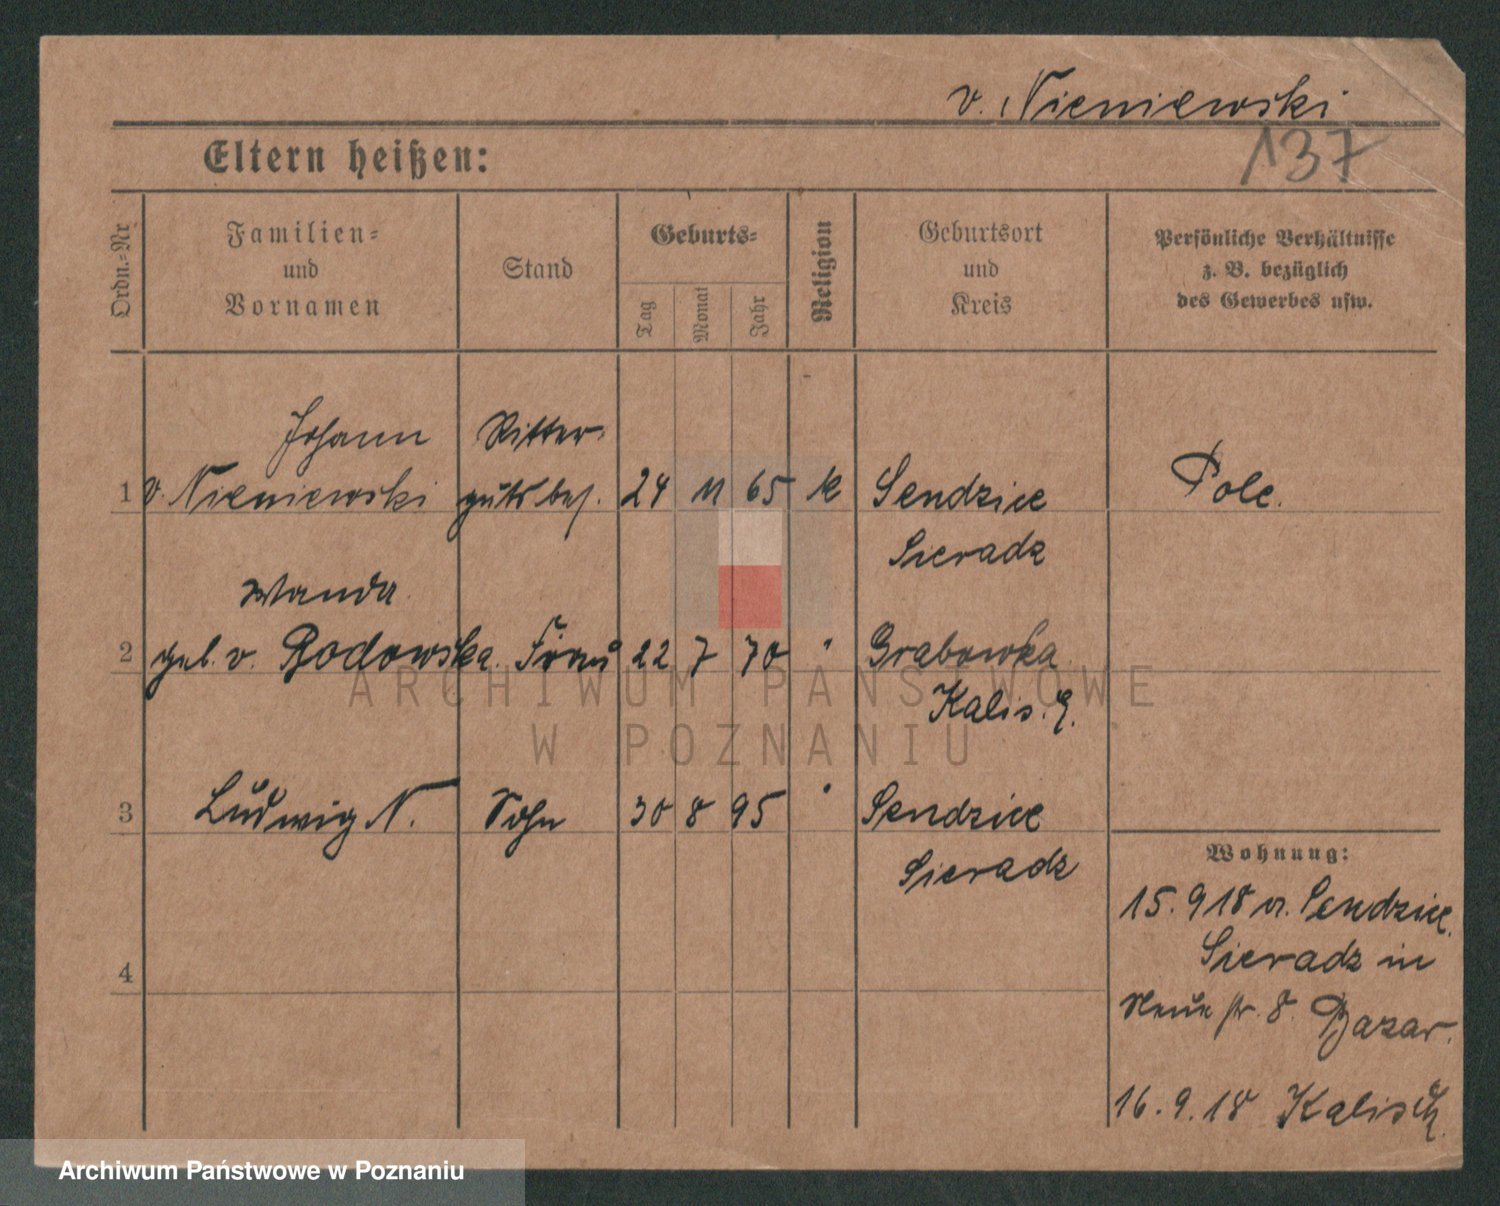 v. Nieniewski
137
Eltern heißen:
Ordn.-Nr
Familien-
und
Vornamen
Stand
Geburts-
Tag
Monat
Jahr
Religion
Geburtsort
und
Kreis
Persönliche Verhältnisse
z. B. bezüglich
des Gewerbes usw.
Johann Ritter-
1 v. Nieniewski gutsbes. 24 11 65 k Sendzice Pole.
Sieradz
Wanda
2 geb. v. Bodowska. Frau 22 7 70 " Grabowka
Kalisch.
3 Ludwig N. Sohn 30 8 95 " Sendzice
Sieradz
4
Wohnung:
15. 9 18 v. Sendzice.
Sieradz in
Neue str. 8. Bazar.
16. 9. 18 Kalisch
ARCHIWUM PAŃSTWOWE
W POZNANIU
Archiwum Państwowe w Poznaniu